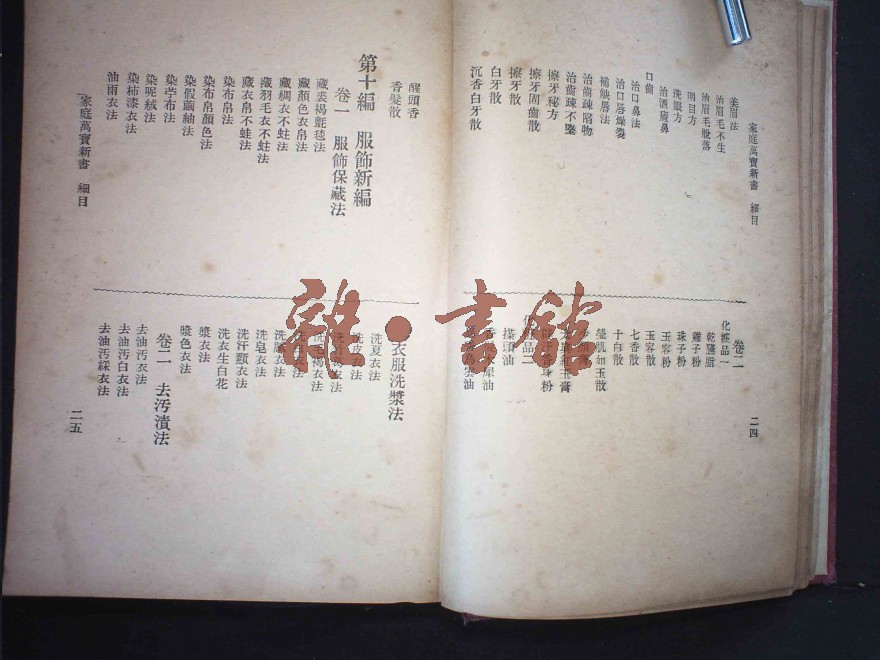 家庭萬寶新書 細目
美眉法
治眉毛不生
治眉毛脫落
明目方
洗眼方
治酒齄鼻
口齒
治口鼻法
治口唇燥裂
補蝕唇法
治齒疎陷物
治齒疎不堅
擦牙秘方
擦牙固齒散
擦牙散
白牙散
沉香白牙散
卷二
化妝品一
乾臙脂
雞子粉
珠子粉
玉容粉
玉容散
七香散
十白散
瑩肌如玉散
二四
醒頭香
香髮散
第十編 服飾新編
卷一 服飾保藏法
藏裘褐氈毯法
藏顏色衣帛法
藏綢衣不蛀法
藏羽毛衣不蛀法
藏衣帛不蛀法
染布帛法
染布帛顏色法
染假繭紬法
染苧布法
染呢絨法
染柿漆衣法
油雨衣法
衣服洗漿法
洗夏衣法
洗皮衣法
洗皂衣法
洗汗顆衣法
洗衣生白花
漿衣法
漿色衣法
卷二 去汚漬法
去油汚衣法
去油汚白衣法
去油汚綵衣法
家庭萬寶新書 細目
二五
雜·書館